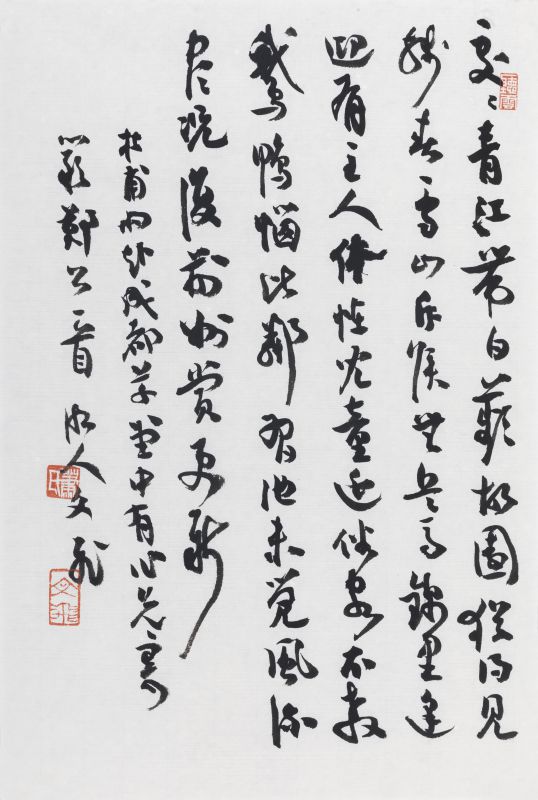 處〻青江帶白蘋故園猶得見
殘春雪山斥候無兵馬錦里逢
迎有主人休怪兒童延俗客不教
鵝鴨惱比鄰習池未覺風流
盡況復荊州賞更新
杜甫將赴成都草堂中有作先寄
嚴鄭公一首 湘人文飛
蕭氏
文飛